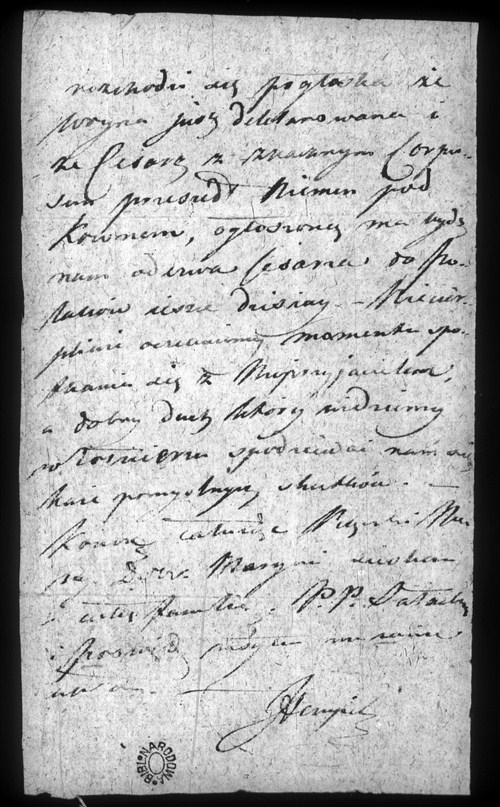 rozchodzi się pogłoska że
woyna już deklarowana i
że Cesarz z znacznym Corpu-
sem przeszedł Niemen pod
Kownem, ogłoszoną ma bydz
nam odezwa Cesarza do Po-
laków ieszcze dzisiay. – Niecier-
pliwie oczekuiemy momentu spo-
tkania się z Nieprzyjacielem,
a dobry duch który widziemy
w Żołnierzu spodziewać nam się
każe pomyślnych skutków. –
Kończę całuiąc
Maryni
i całey familii. P.P.
i
Henryk
BIBL. NARODOWA